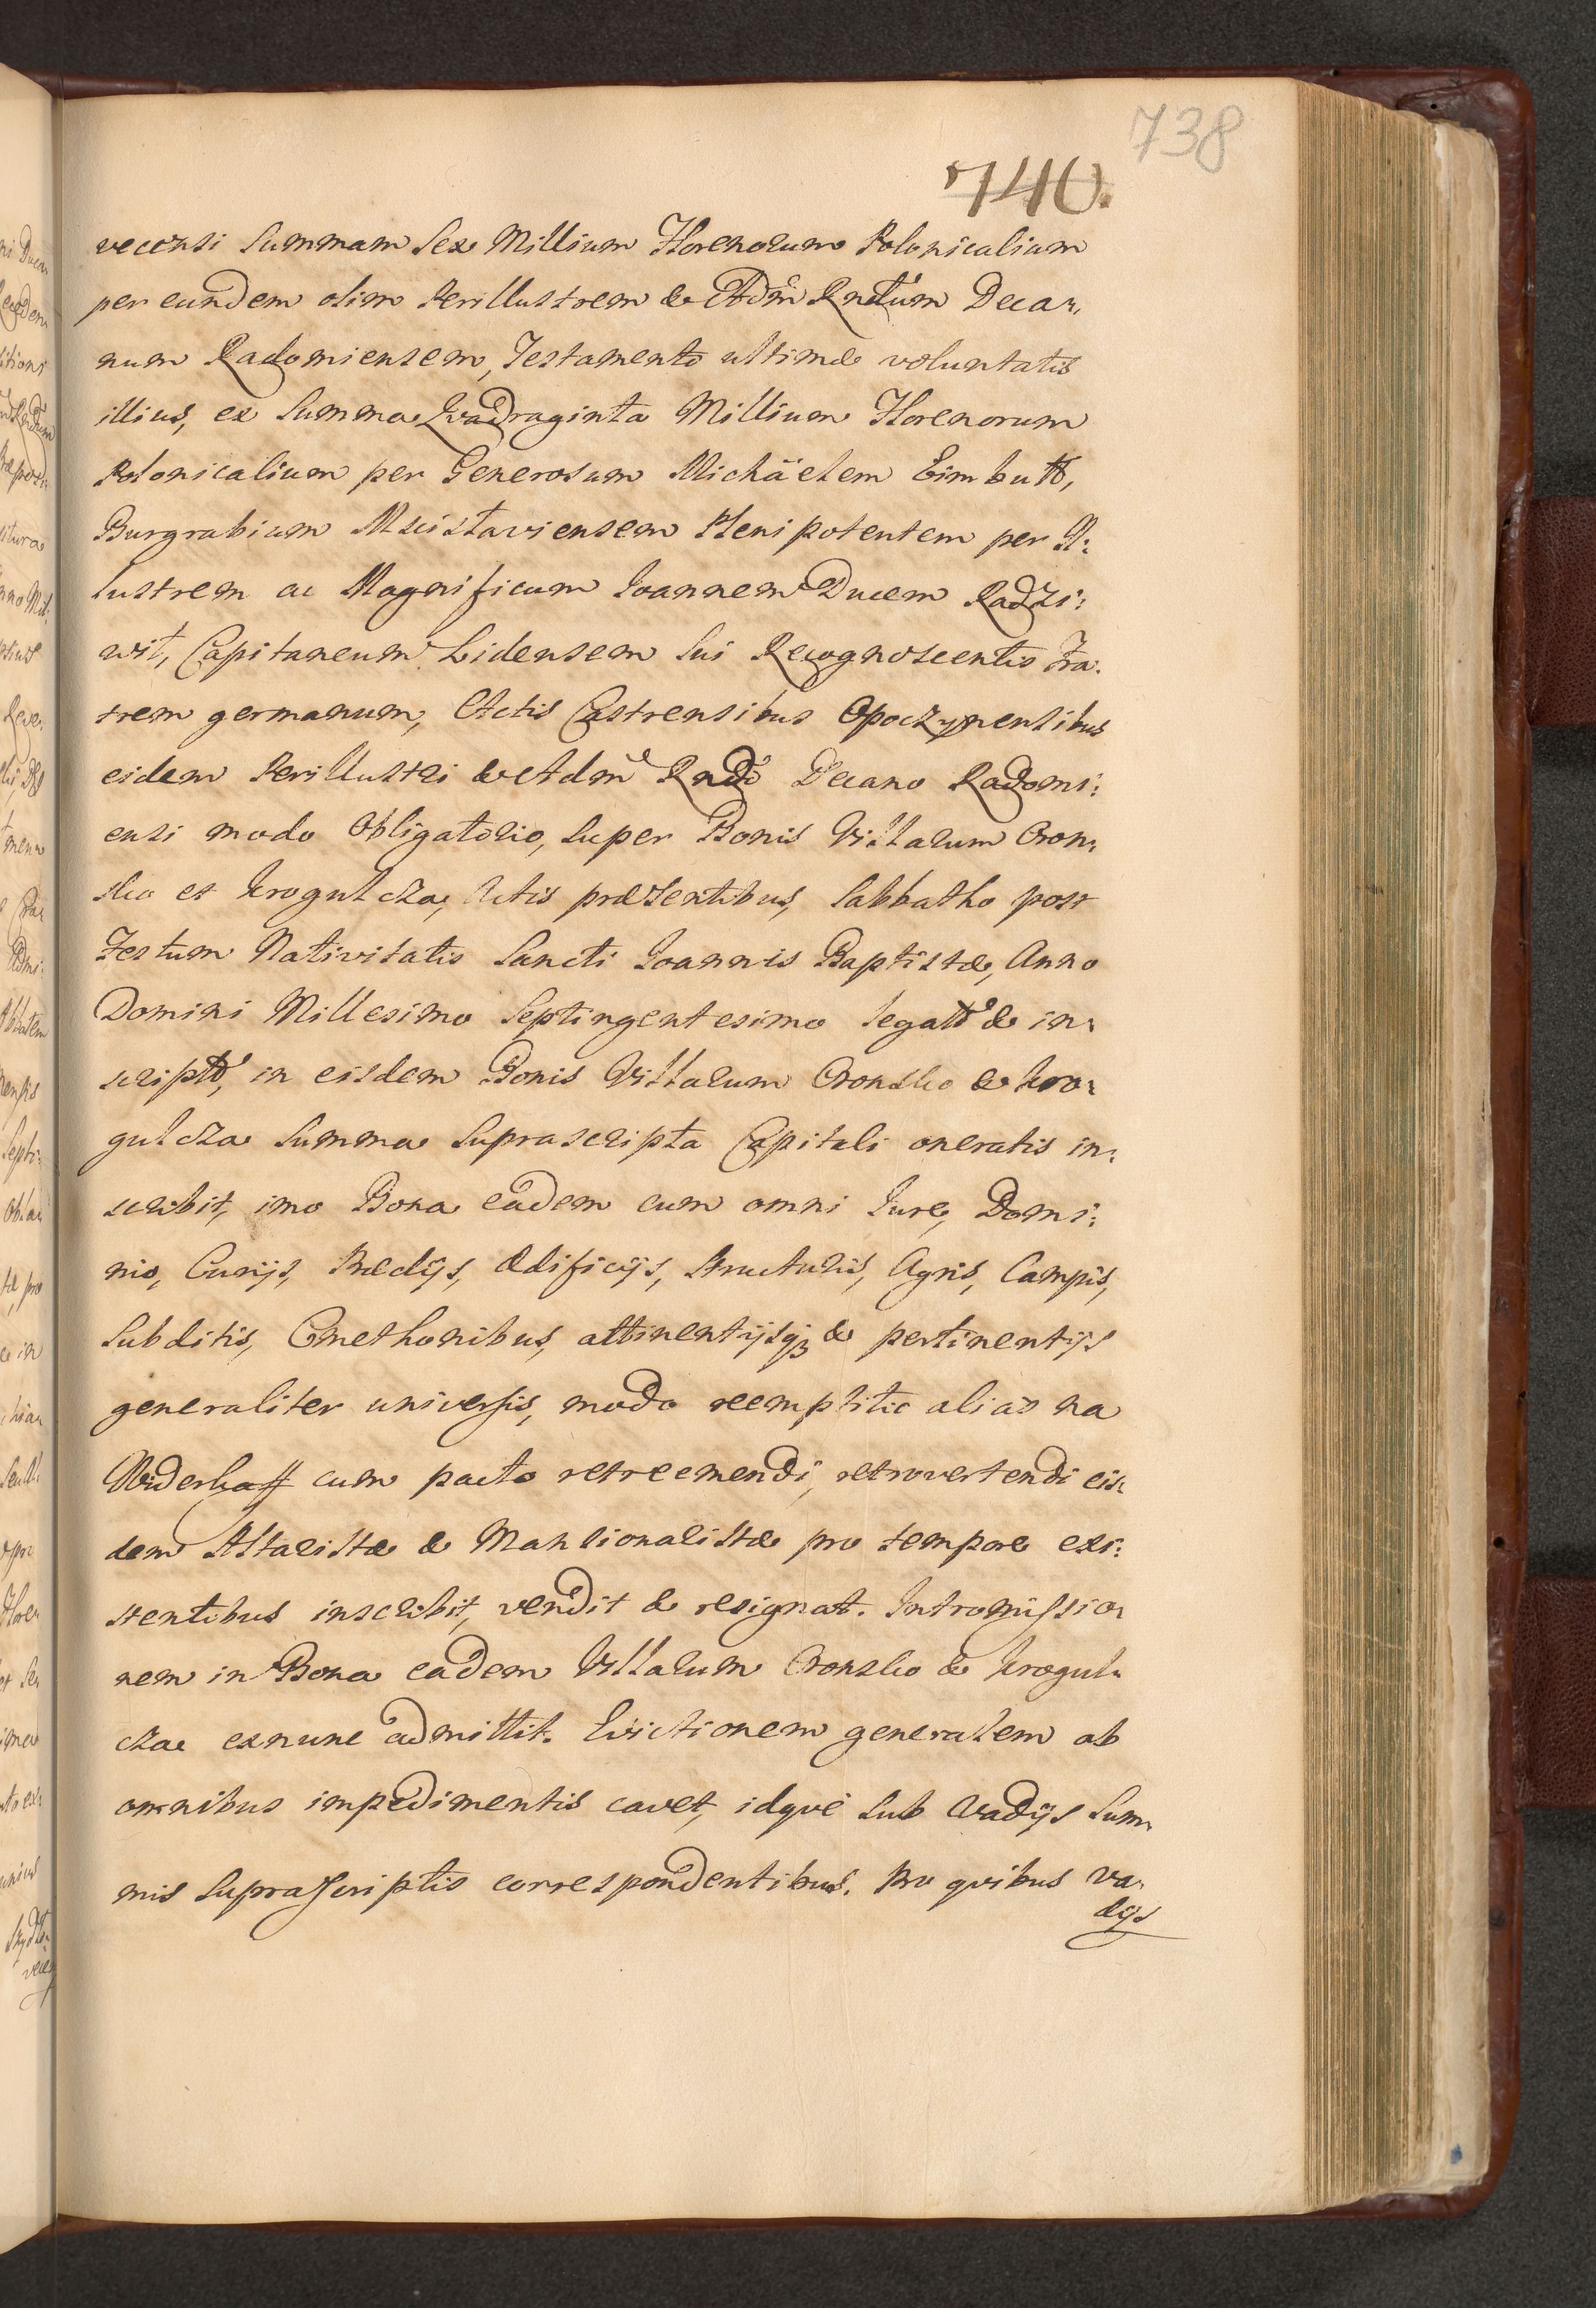 738
740.
veciensi Summam Sex Millium Florenorum Polonicalium
per eundem olim Perillustrem & Adm̃ Rndum Deca:
num Radomiensem, Testamento ultimæ voluntatis
illius, ex Summa Qvadraginta Millium Florenorum
Polonicalium per Generosum Michäelem Eimbutt,
Burgrabium Mscistaviensem Plenipotentem per Il:
lustrem ac Magnificum Ioannem Ducem Radzi:
wił, Capitaneum Lidensem sui Recognoscentis Fra:
trem germanum, Actis Castrensibus Opoczynensibus
eidem Perillustri & Adm̃ Rndo Decano Radomi:
ensi modo Obligatorio, super Bonis Villarum Oron:
sko et Krogulcza, Actis præsentibus, Sabbatho post
Festum Nativitatis Sancti Ioannis Baptistæ, Anno
Domini Millesimo Septingentesimo legatt & in:
scriptt, in eisdem Bonis Villarum Oronsko & Kro:
gulcza Summa Suprascripta Capitali oneratis in:
scribit, imo Bona eadem cum omni Iure, Domi:
nio, Curijs, Prædijs, Ædificijs, Structuris, Agris, Campis,
Subditis, Cmethonibus, attinentijsq3 & pertinentijs
generaliter universis, modo reemptitio alias na
Widerkaff cum pacto retreemendi, retrovertendi eis:
dem Altaristæ & Mansionalistæ pro tempore exi:
stentibus inscribit, vendit & resignat. Intromissio:
nem in Bona eadem Villarum Oronsko & Krogul:
cza exnunc admittit. Evictionem generalem ab
omnibus impedimentis cavet, idqve sub Vadijs Sum:
mis Suprascriptis correspondentibus. Pro qvibus va:
dijs